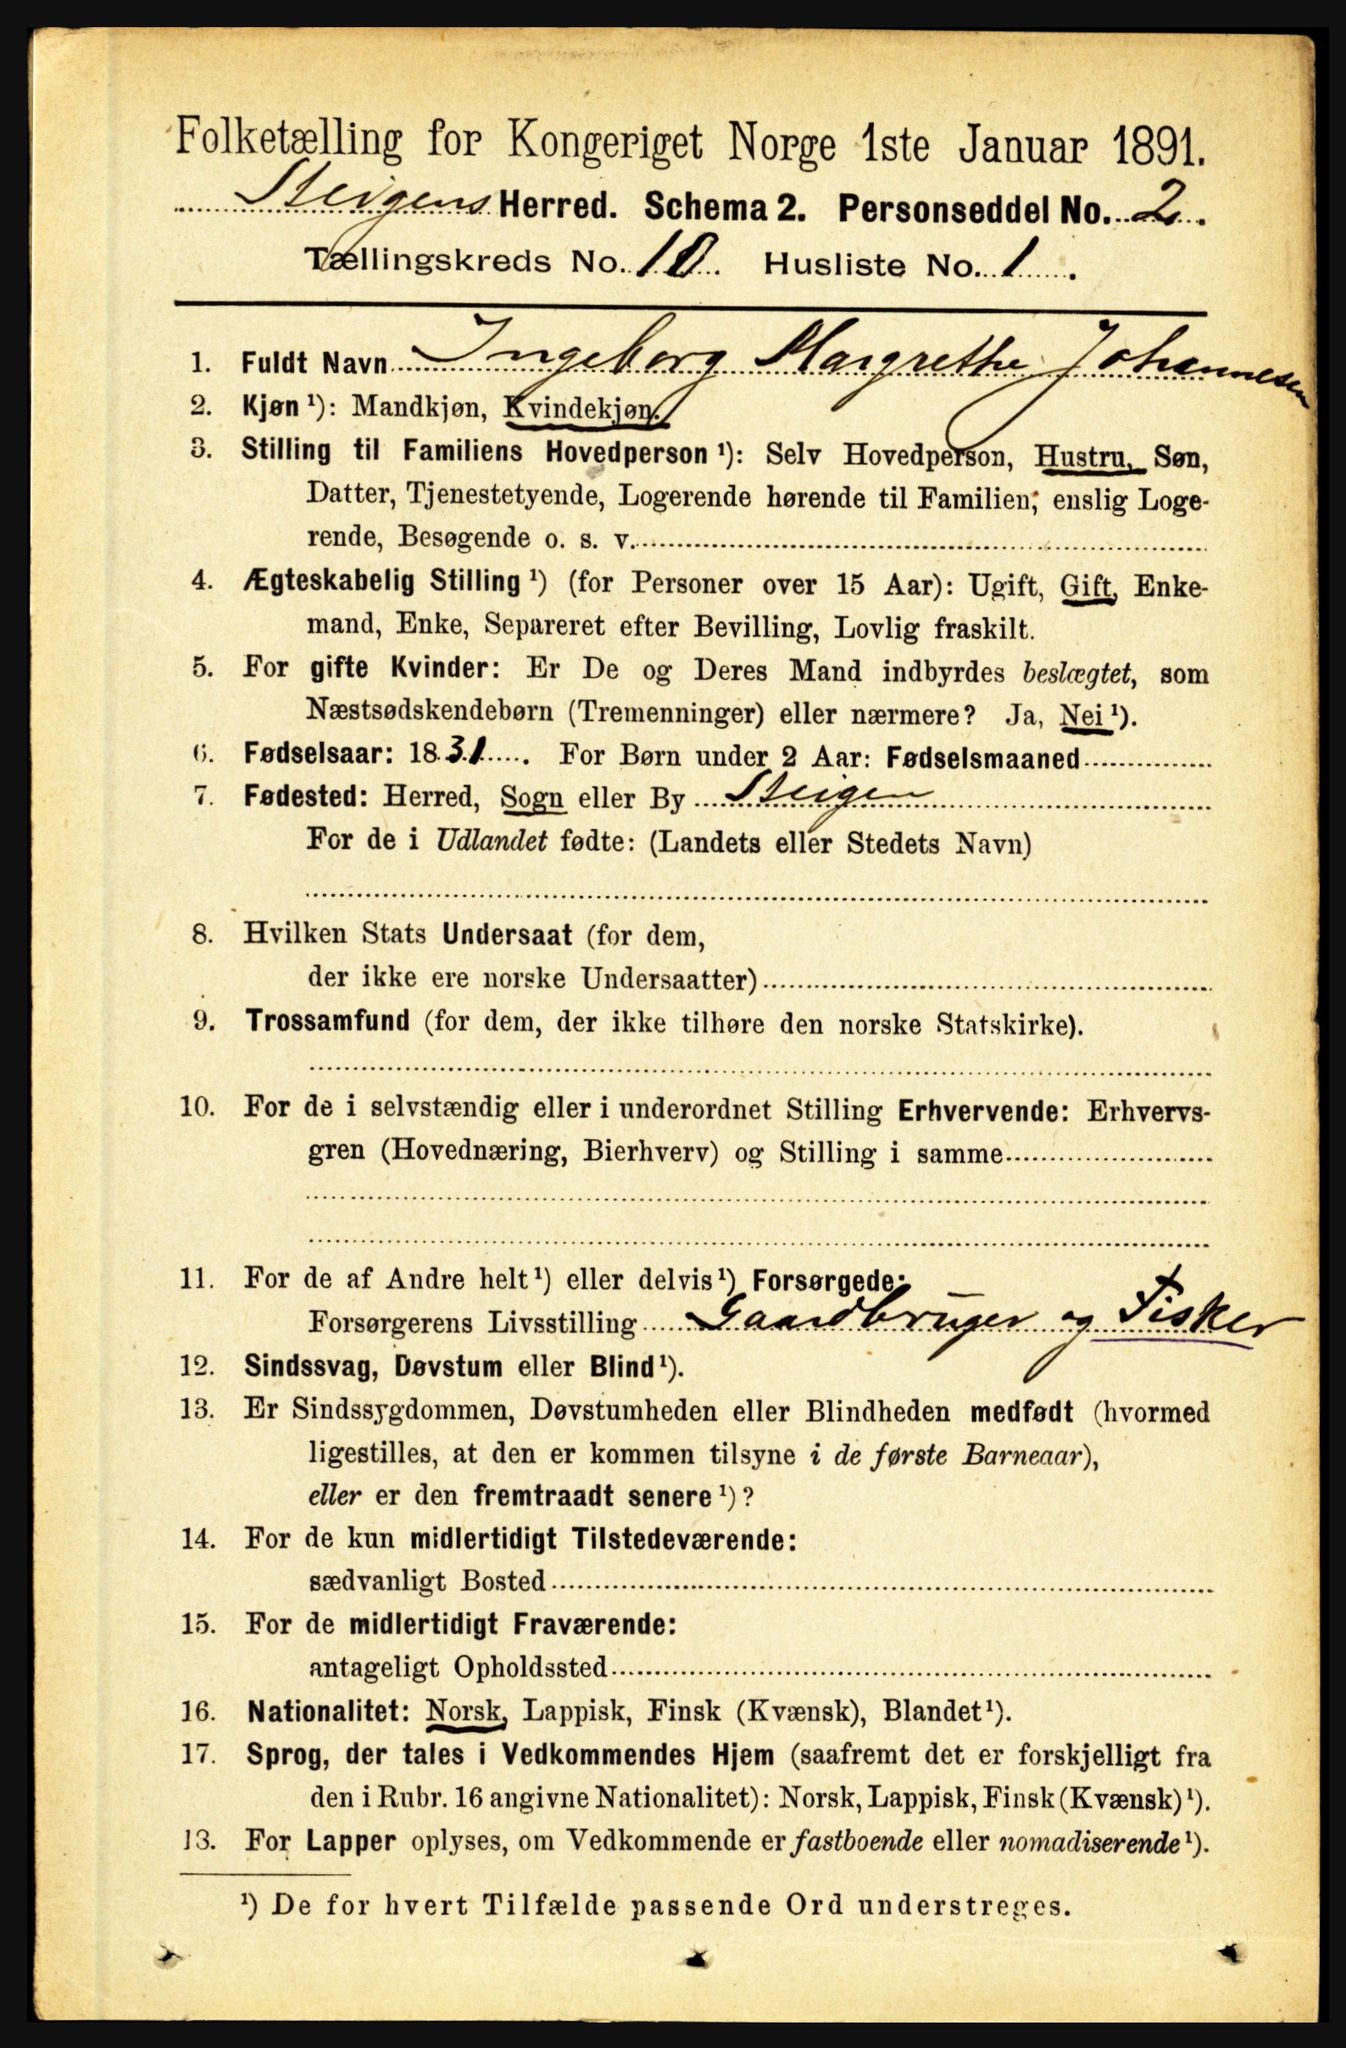 Folketælling for Kongeriget Norge 1ste Januar 1891.
Steigens Herred. Schema 2. Personseddel No. 2.
Tællingskreds No. 10. Husliste No. 1.
1. Fuldt Navn Ingeborg Margrethe Johannesen
2. Kjøn ¹): Mandkjøn, Kvindekjøn.
3. Stilling til Familiens Hovedperson ¹): Selv Hovedperson, Hustru, Søn,
Datter, Tjenestetyende, Logerende hørende til Familien, enslig Loge-
rende, Besøgende o. s. v.
4. Ægteskabelig Stilling ¹) (for Personer over 15 Aar): Ugift, Gift, Enke-
mand, Enke, Separeret efter Bevilling, Lovlig fraskilt.
5. For gifte Kvinder: Er De og Deres Mand indbyrdes beslægtet, som
Næstsødskendebørn (Tremenninger) eller nærmere? Ja, Nei ¹).
6. Fødselsaar: 1831. For Børn under 2 Aar: Fødselsmaaned
7. Fødested: Herred, Sogn eller By Steigen
For de i Udlandet fødte: (Landets eller Stedets Navn)
8. Hvilken Stats Undersaat (for dem,
der ikke ere norske Undersaatter)
9. Trossamfund (for dem, der ikke tilhøre den norske Statskirke).
10. For de i selvstændig eller i underordnet Stilling Erhvervende: Erhvervs-
gren (Hovednæring, Bierhverv) og Stilling i samme
11. For de af Andre helt ¹) eller delvis ¹) Forsørgede:
Forsørgerens Livsstilling Gaardbruger og Fisker
12. Sindssvag, Døvstum eller Blind ¹).
13. Er Sindssygdommen, Døvstumheden eller Blindheden medfødt (hvormed
ligestilles, at den er kommen tilsyne i de første Barneaar),
eller er den fremtraadt senere ¹)?
14. For de kun midlertidigt Tilstedeværende:
sædvanligt Bosted
15. For de midlertidigt Fraværende:
antageligt Opholdssted
16. Nationalitet: Norsk, Lappisk, Finsk (Kvænsk), Blandet ¹).
17. Sprog, der tales i Vedkommendes Hjem (saafremt det er forskjelligt fra
den i Rubr. 16 angivne Nationalitet): Norsk, Lappisk, Finsk (Kvænsk) ¹).
13. For Lapper oplyses, om Vedkommende er fastboende eller nomadiserende ¹).
¹) De for hvert Tilfælde passende Ord understreges.